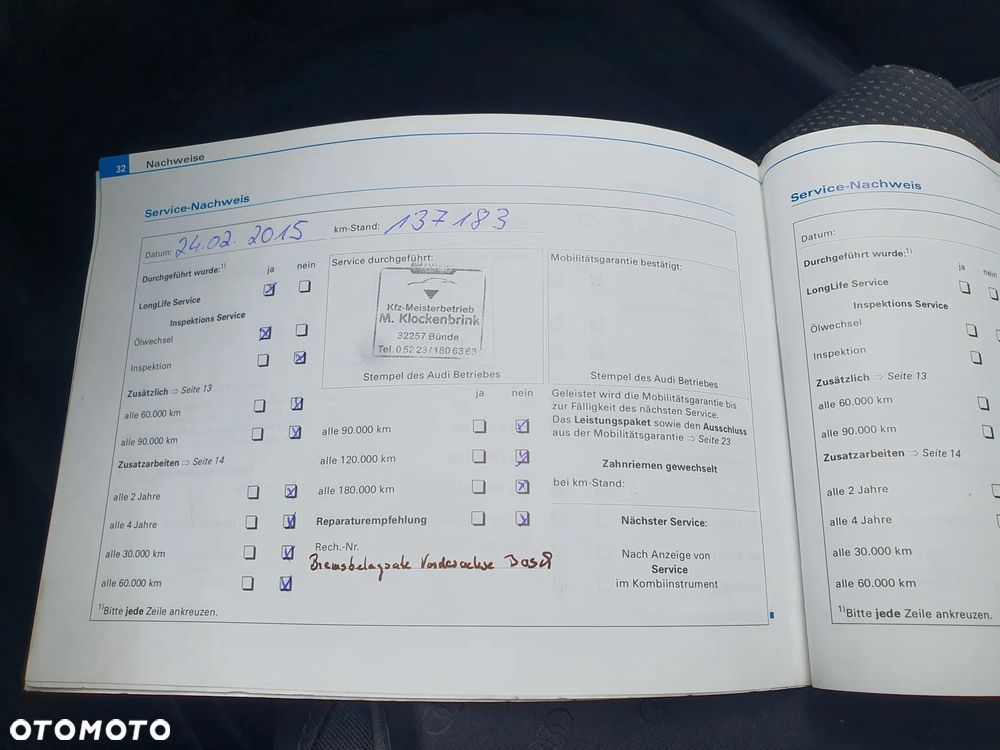 32 Nachweise
Service-Nachweis
Datum: 24.02.2015 km-Stand: 137183
Durchgeführt wurde:1) ja nein
LongLife Service
Inspektions Service
Ölwechsel
Inspektion
Zusätzlich ⇒ Seite 13
alle 60.000 km
alle 90.000 km
Zusatzarbeiten ⇒ Seite 14
alle 2 Jahre
alle 4 Jahre
alle 30.000 km
alle 60.000 km
1)Bitte jede Zeile ankreuzen.
Service durchgeführt:
Kfz-Meisterbetrieb
M. Klockenbrink
32257 Bünde
Tel. 05223/1806363
Stempel des Audi Betriebes
ja nein
alle 90.000 km
alle 120.000 km
alle 180.000 km
Reparaturempfehlung
Rech.-Nr.
Vorderachse
Mobilitätsgarantie bestätigt:
Stempel des Audi Betriebes
Geleistet wird die Mobilitätsgarantie bis
zur Fälligkeit des nächsten Service.
Das Leistungspaket sowie den Ausschluss
aus der Mobilitätsgarantie ⇒ Seite 23
Zahnriemen gewechselt
bei km-Stand:
Nächster Service:
Nach Anzeige von
Service
im Kombiinstrument
Service-Nachweis
Datum:
Durchgeführt wurde:1) ja nein
LongLife Service
Inspektions Service
Ölwechsel
Inspektion
Zusätzlich ⇒ Seite 13
alle 60.000 km
alle 90.000 km
Zusatzarbeiten ⇒ Seite 14
alle 2 Jahre
alle 4 Jahre
alle 30.000 km
alle 60.000 km
1)Bitte jede Zeile ankreuzen.
OTOMOTO